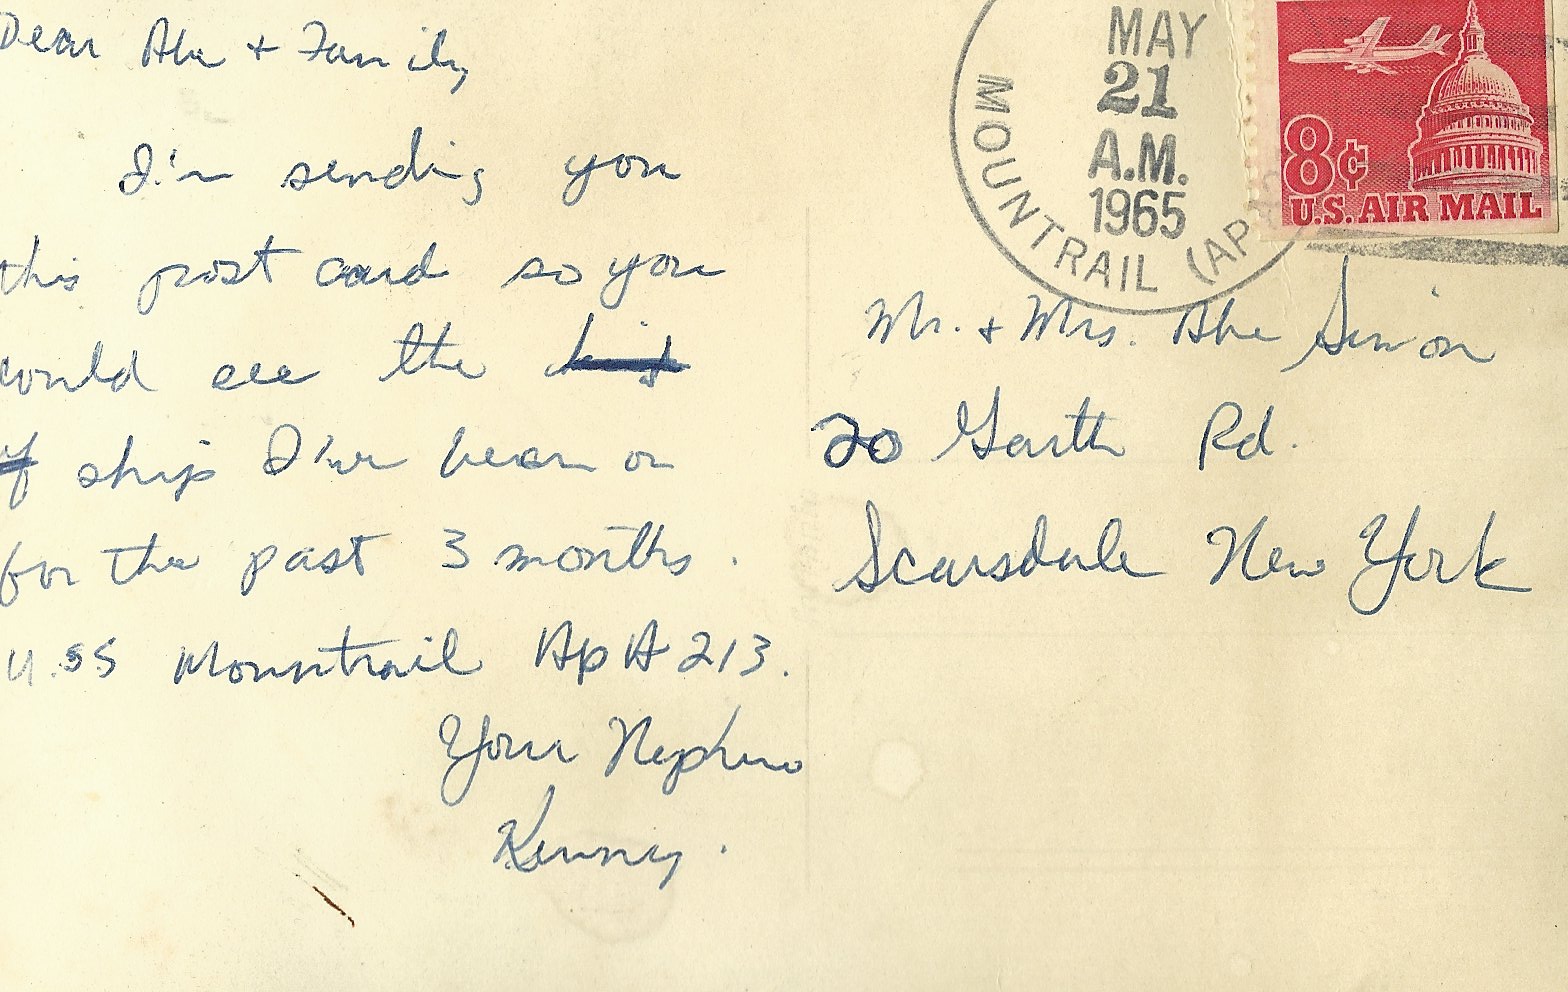 Dear Abe + Family
I'm sending you
this post card so you
could see the
of ship I've been on
for the past 3 months.
U.SS Mountrail ApA 213.
Your Nephew
Kenny.
MAY
21
A.M.
1965
MOUNTRAIL (APA
8¢
U.S. AIR MAIL
Mr. + Mrs. Abe Simon
20 Garth Rd.
Scarsdale New York